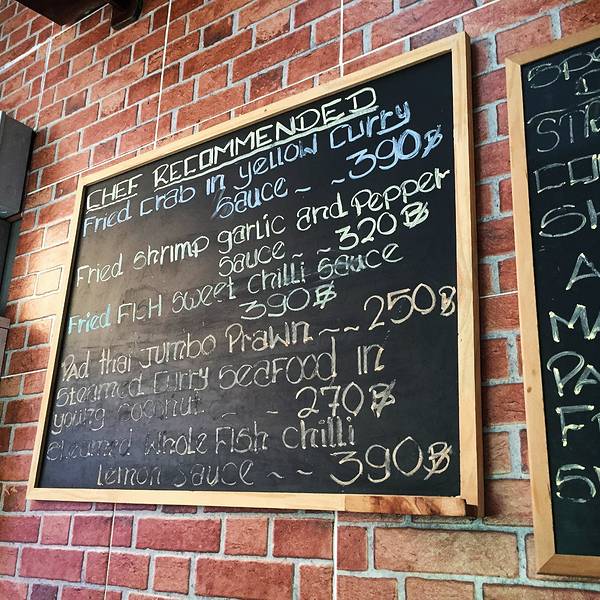 CHEF RECOMMENDED
Fried crab in yellow curry
sauce ~ ~390฿
Fried shrimp garlic and Pepper
sauce ~ ~320฿
Fried FISH sweet chilli sauce
390฿
PAd thai Jumbo Prawn ~~250฿
Steamed curry seaFood in
young coconut ~ ~ 270฿
Steamed whole Fish chilli
Lemon sauce ~ ~390฿